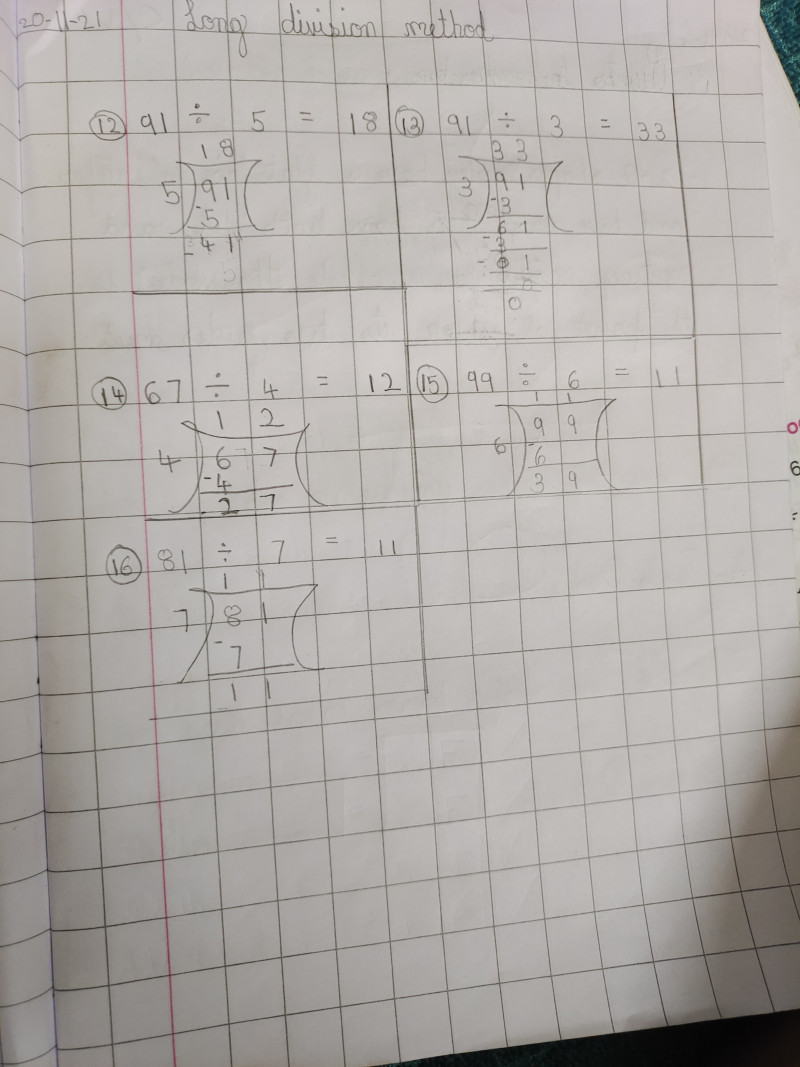 20-11-21 Long division method
12 91 ÷ 5 = 18
18
5 91
-5
-41
13 91 ÷ 3 = 33
33
3 91
-3
61
-3
-01
0
0
14 67 ÷ 4 = 12
12
4 67
-4
27
15 99 ÷ 6 = 11
11
6 99
-6
39
16 81 ÷ 7 = 11
11
7 81
-7
11